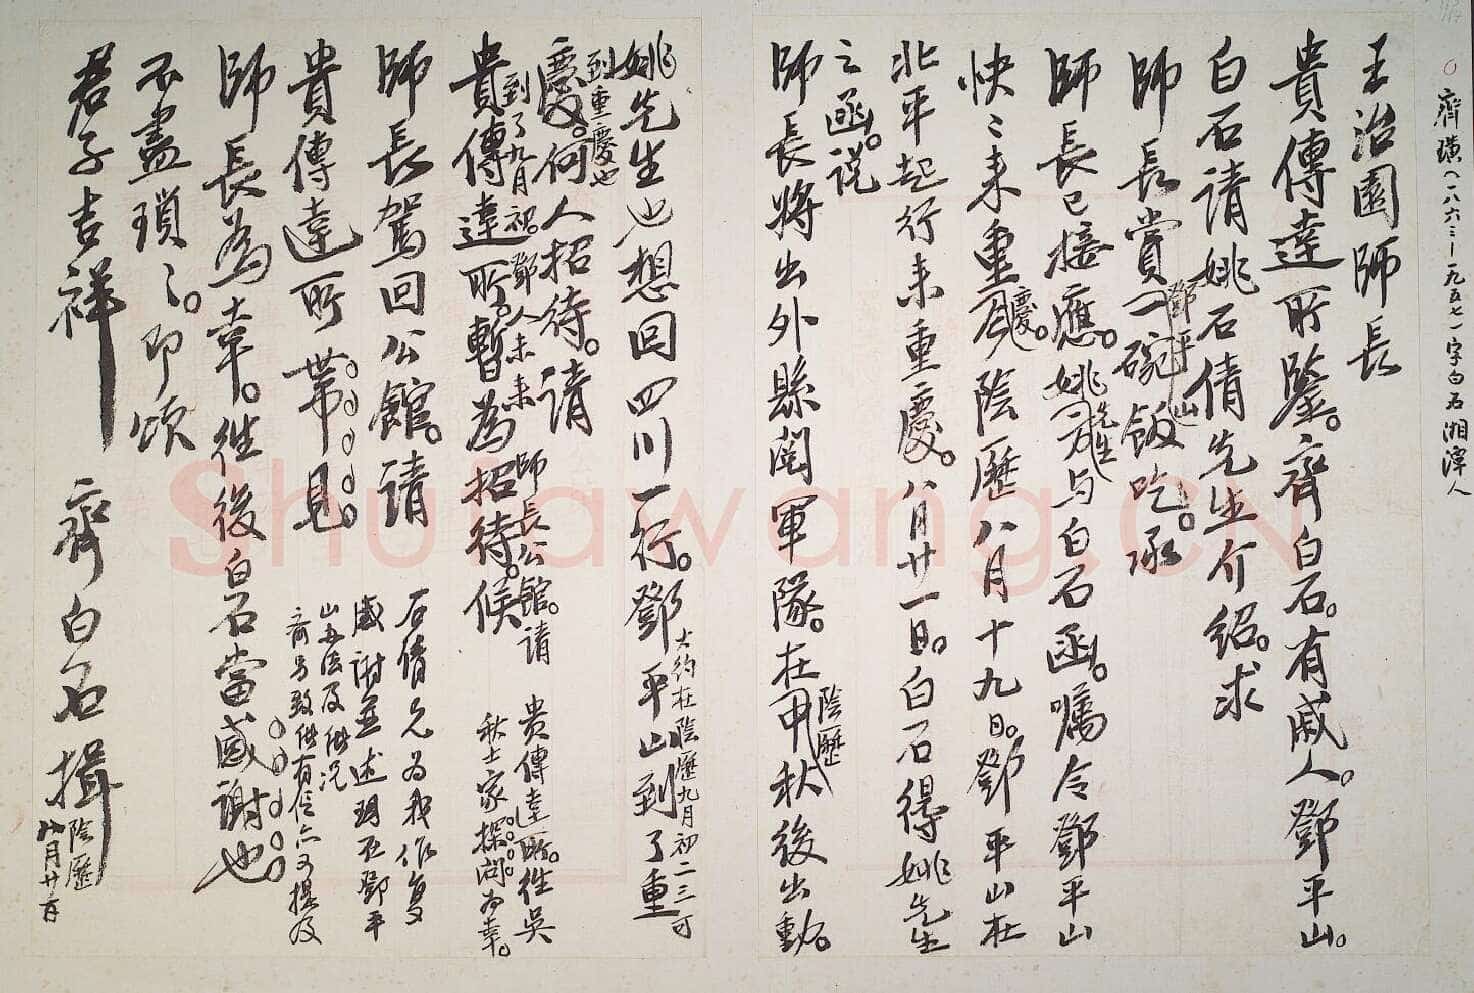 齊璜（一八六三—一九五七）字白石湘潭人
王治園師長
貴傳達所鑒。齊白石。有戚人。鄧平山。
白石請姚石倩先生介紹。求
師長賞鄧平山一碗飯吃。承
師長已接應。姚先生與白石函。囑令鄧平山
快快來重慶。陰歷八月十九日。鄧平山在
北平起行來重慶。八月廿一日。白石得姚先生
之函。說
師長將出外縣閱軍隊。在陰歷秋後出動。
姚先生也想回四川一行。鄧平山到了重
大約在陰歷九月初二三可
到重慶也
慶。何人招待。請
到了九月初。鄧人未來
師長公館。請
貴傳達所。往吳
秋士家探問為幸。
貴傳達所。暫為招待。候
師長駕回公館。請
貴傳達所帶見。
師長為幸。往後白石當感謝也
不盡瑣瑣。即頌
君子吉祥 齊白石揖
陰歷
八月廿二日
石倩兄為我作复
感謝並述明不鄧平